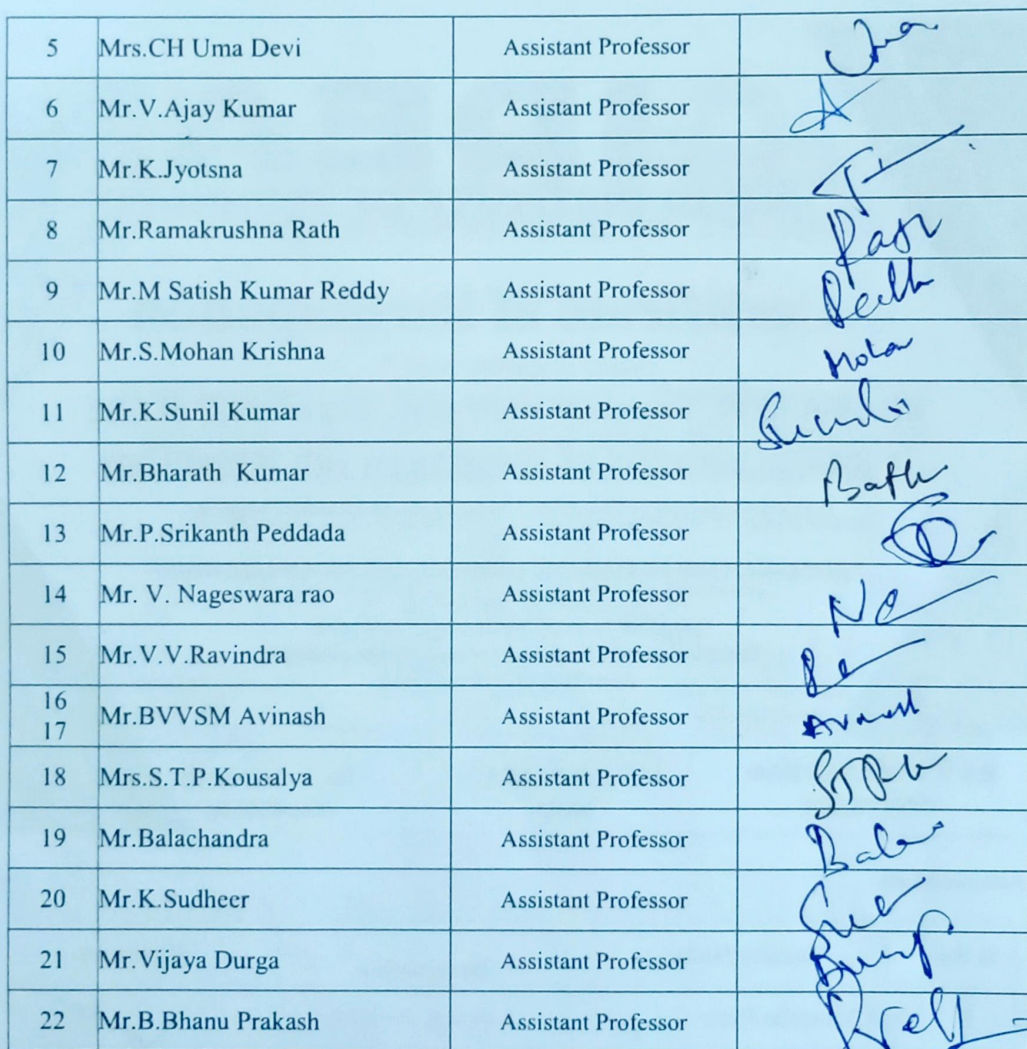 5 Mrs.CH Uma Devi Assistant Professor Uma
6 Mr.V.Ajay Kumar Assistant Professor A
7 Mr.K.Jyotsna Assistant Professor
8 Mr.Ramakrushna Rath Assistant Professor
9 Mr.M Satish Kumar Reddy Assistant Professor
10 Mr.S.Mohan Krishna Assistant Professor
11 Mr.K.Sunil Kumar Assistant Professor
12 Mr.Bharath Kumar Assistant Professor
13 Mr.P.Srikanth Peddada Assistant Professor
14 Mr. V. Nageswara rao Assistant Professor
15 Mr.V.V.Ravindra Assistant Professor
16
17 Mr.BVVSM Avinash Assistant Professor
18 Mrs.S.T.P.Kousalya Assistant Professor
19 Mr.Balachandra Assistant Professor Bala
20 Mr.K.Sudheer Assistant Professor
21 Mr.Vijaya Durga Assistant Professor
22 Mr.B.Bhanu Prakash Assistant Professor